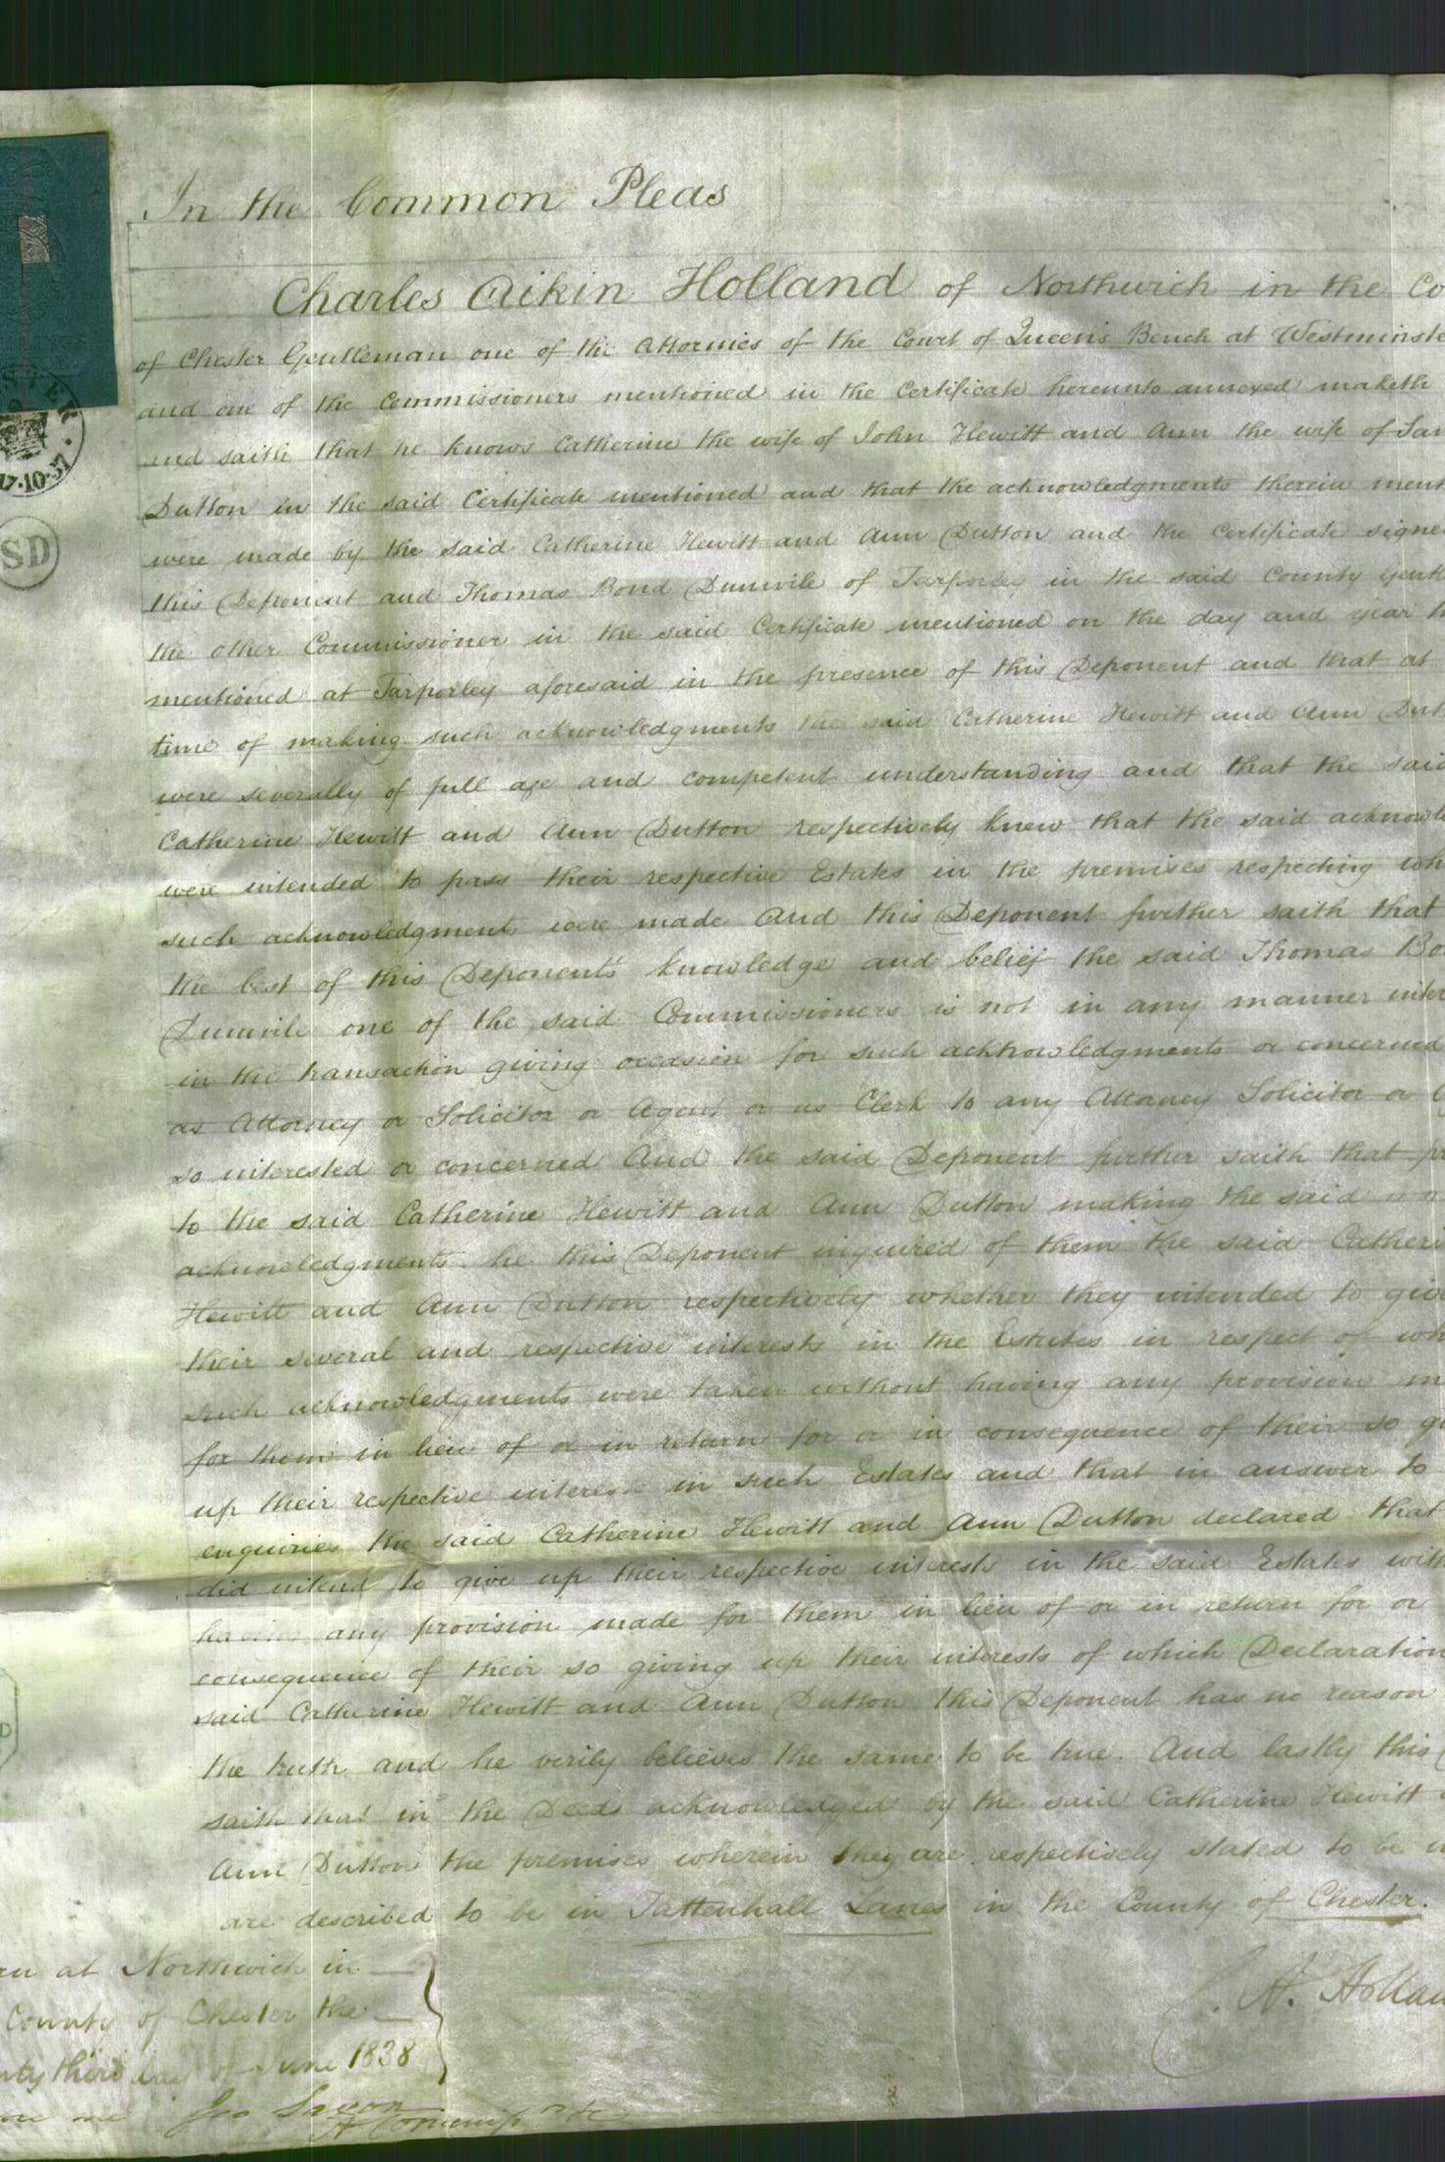 In the Common Pleas
Charles Aikin Holland of Northwich in the Co
of Chester Gentleman one of the Attornies of the Court of Queen's Bench at Westminste
and one of the Commissioners mentioned in the Certificate hereunto annexed maketh
and saith that he knows Catherine the wife of John Hewitt and Ann the wife of
Dutton in the said Certificate mentioned and that the acknowledgments therein ment
were made by the said Catherine Hewitt and Ann Dutton and the Certificate signe
this Deponent and Thomas Bond Dunvile of Tarporley in the said County Gent
the other Commissioner in the said Certificate mentioned on the day and year
mentioned at Tarporley aforesaid in the presence of this Deponent and that at
time of making such acknowledgments the said Catherine Hewitt and Ann Dut
were severally of full age and competent understanding and that the said
Catherine Hewitt and Ann Dutton respectively knew that the said acknowl
were intended to pass their respective Estates in the premises respecting wh
such acknowledgment were made And this Deponent further saith that
the best of this Deponent's knowledge and belief the said Thomas Bo
Dunvile one of the said Commissioners is not in any manner inter
in the transaction giving occasion for such acknowledgments or concerned
as Attorney or Solicitor or Agent or as Clerk to any Attorney Solicitor or
so interested or concerned And the said Deponent further saith that
to the said Catherine Hewitt and Ann Dutton making the said
acknowledgments he this Deponent inquired of them the said Catheri
Hewitt and Ann Dutton respectively whether they intended to give
their several and respective interests in the Estates in respect of wh
such acknowledgments were taken without having any provision m
for them in lieu of or in return for or in consequence of their so g
up their respective interest in such Estates and that in answer to
enquiries the said Catherine Hewitt and Ann Dutton declared that
did intend to give up their respective interests in the said Estates with
having any provision made for them in lieu of or in return for or
consequence of their so giving up their interests of which Declaration
said Catherine Hewitt and Ann Dutton this Deponent has no reason
the truth and he verily believes the same to be true. And lastly this
saith that in the Deeds acknowledged by the said Catherine Hewitt
Ann Dutton the premises wherein they are respectively stated to be
are described to be in Tattenhall Lanes in the County of Chester.
at Northwich in
County of Chester the
third day of June 1838
me Geo Saxon
C. A. Hollan
17.10.37
SD